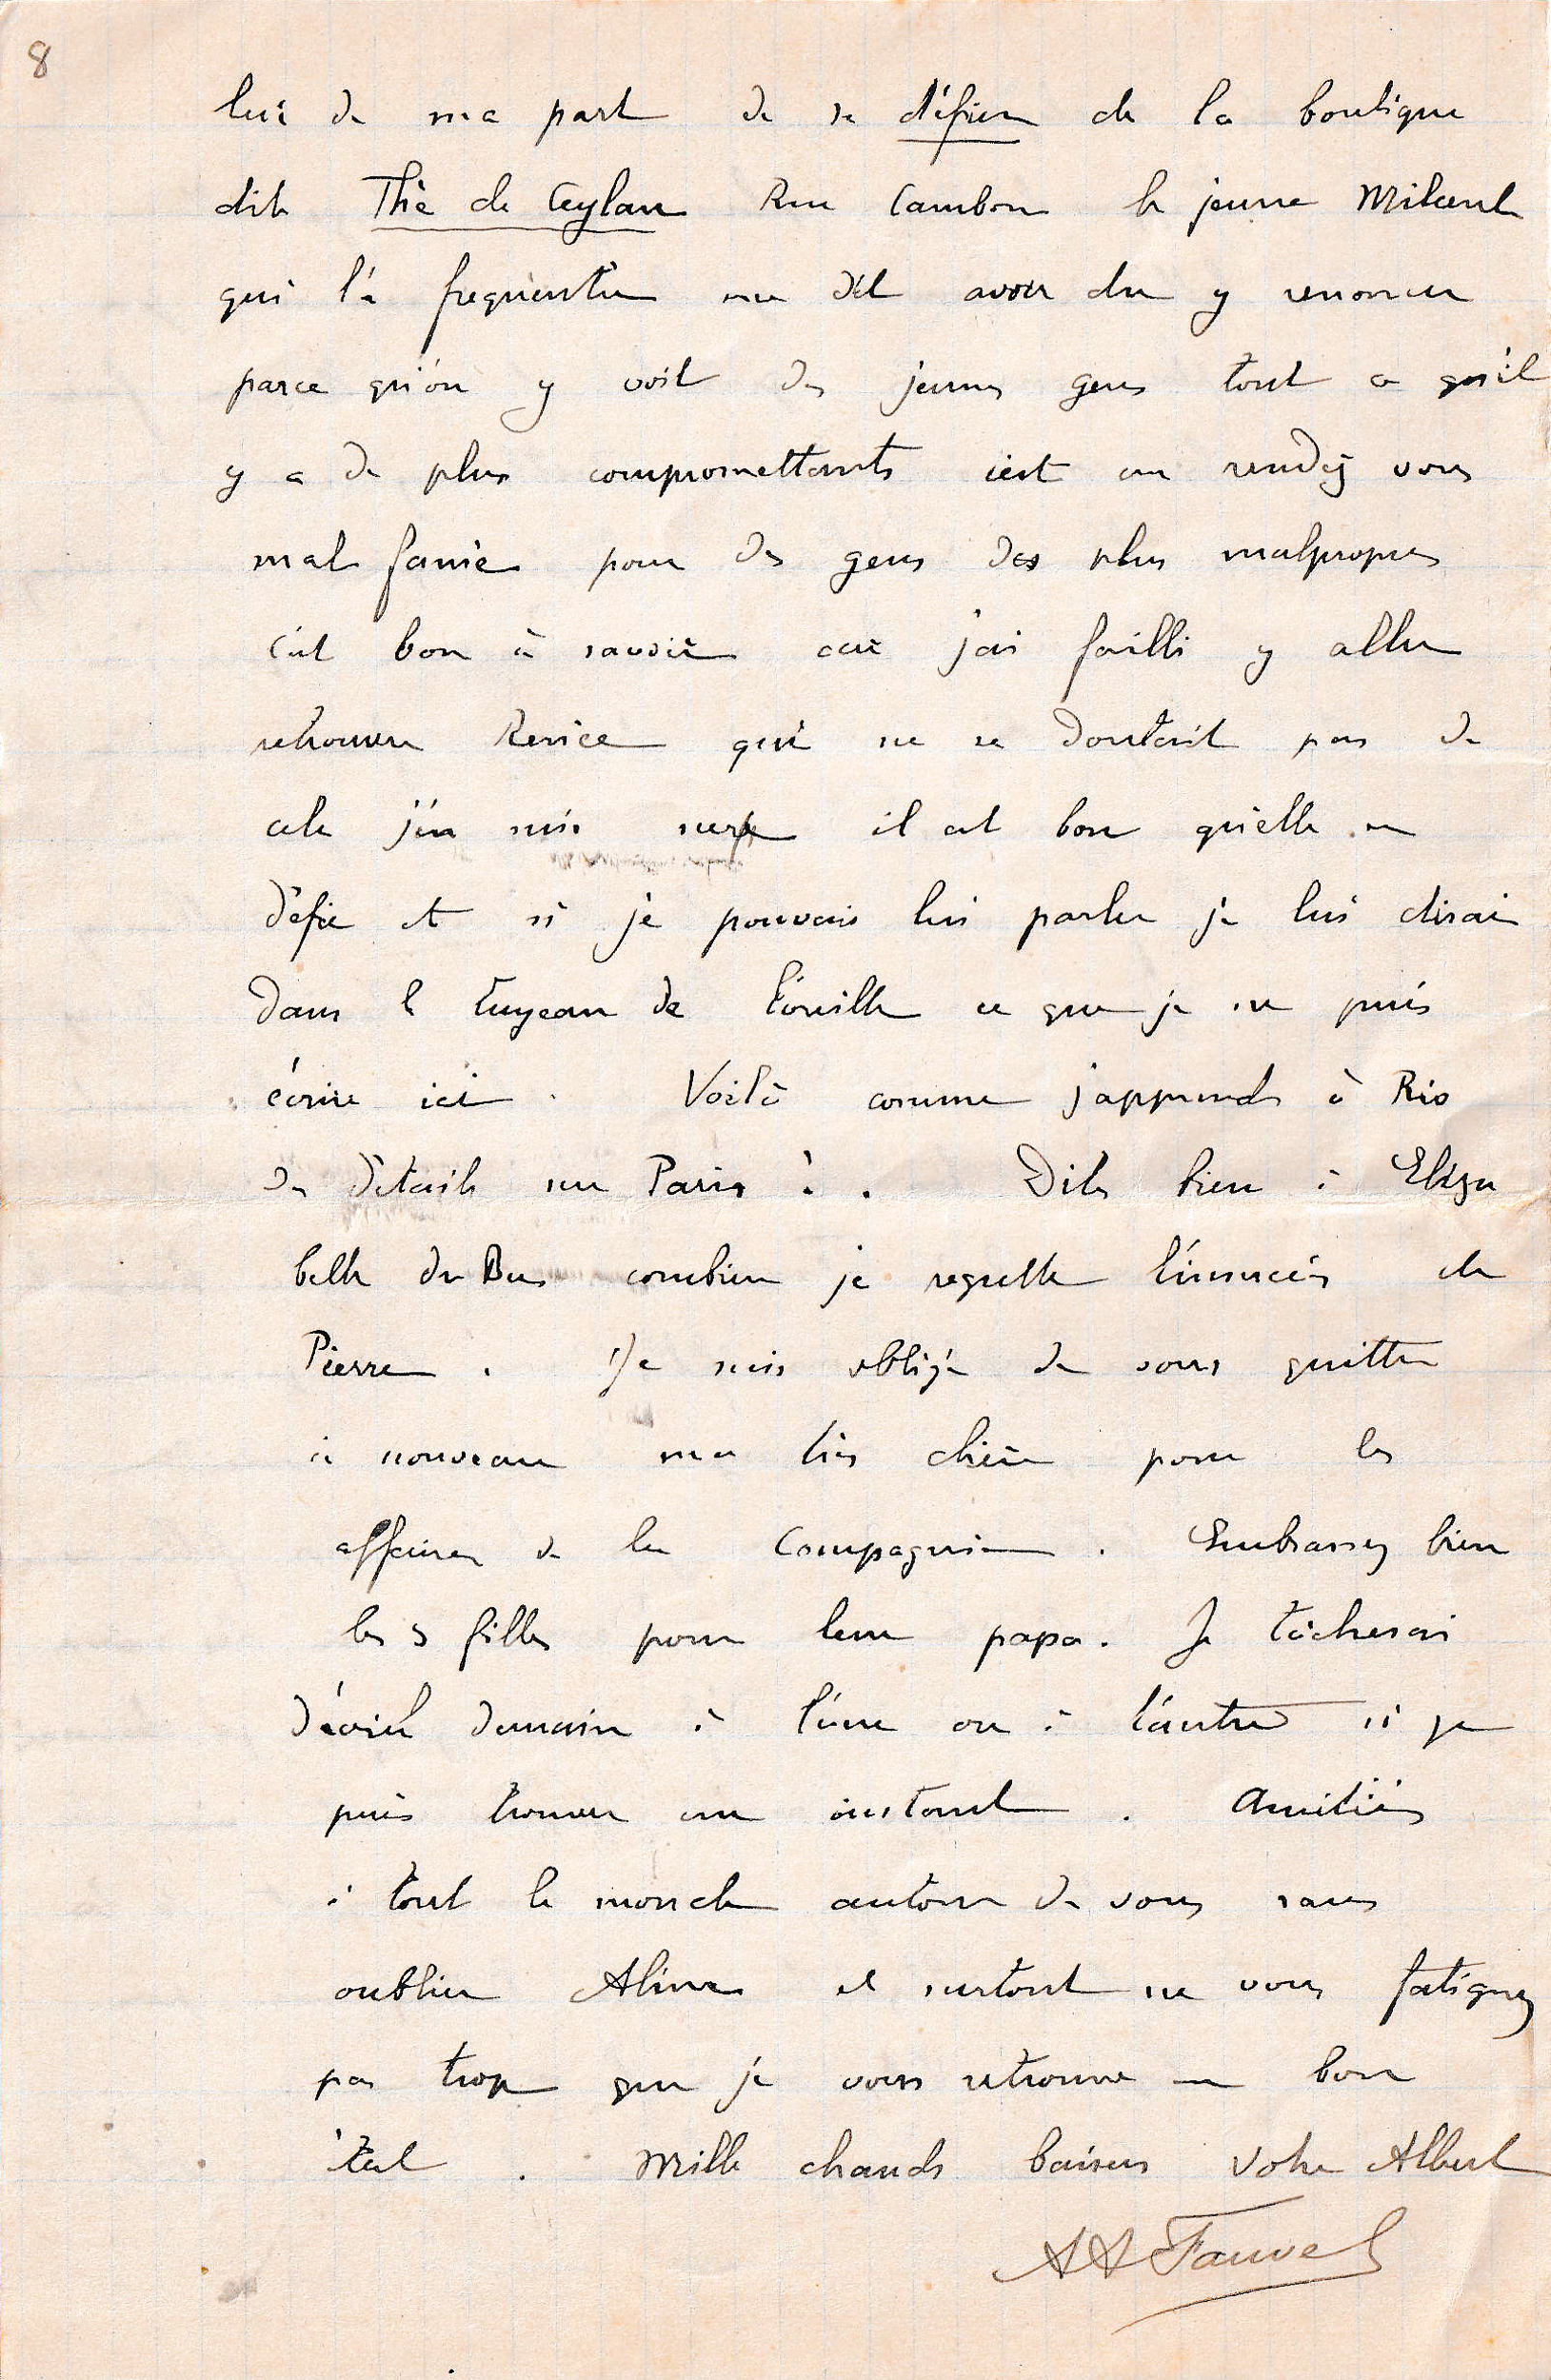 8
lui de ma part de se défier de la boutique
dite Thé de Ceylan Rue Cambon le jeune
qui l'a fréquentée me dit avoir du y renoncer
parce qu'on y voit des jeunes gens tout ce qu'il
y a de plus compromettants c'est un rendez vous
mal famé pour des gens des plus malpropres
c'est bon à savoir car j'ai failli y aller
retrouver qui ne se doutait pas de
cela j'en suis sur il est bon qu'elle se
défie et si je pouvais lui parler je lui dirai
dans le tuyeau de l'oreille ce que je ne puis
écrire ici. Voilà comme j'apprends à Rio
des détails sur Paris !. Dites bien à Eliza
beth du Bus combien je regrette l'insuccès de
Pierre. Je suis obligé de vous quitter
à nouveau ma très chère pour les
affaires de la Compagnie. Embrassez bien
les 3 filles pour leur papa. Je tâcherai
d'écrire demain à l'une ou à l'autre si je
puis trouver un instant. Amitiés
à tout le monde autour de vous sans
oublier Aline et surtout ne vous fatiguez
pas trop que je vous retrouve en bon
état. Mille chauds baisers votre Albert
AA Fauvel